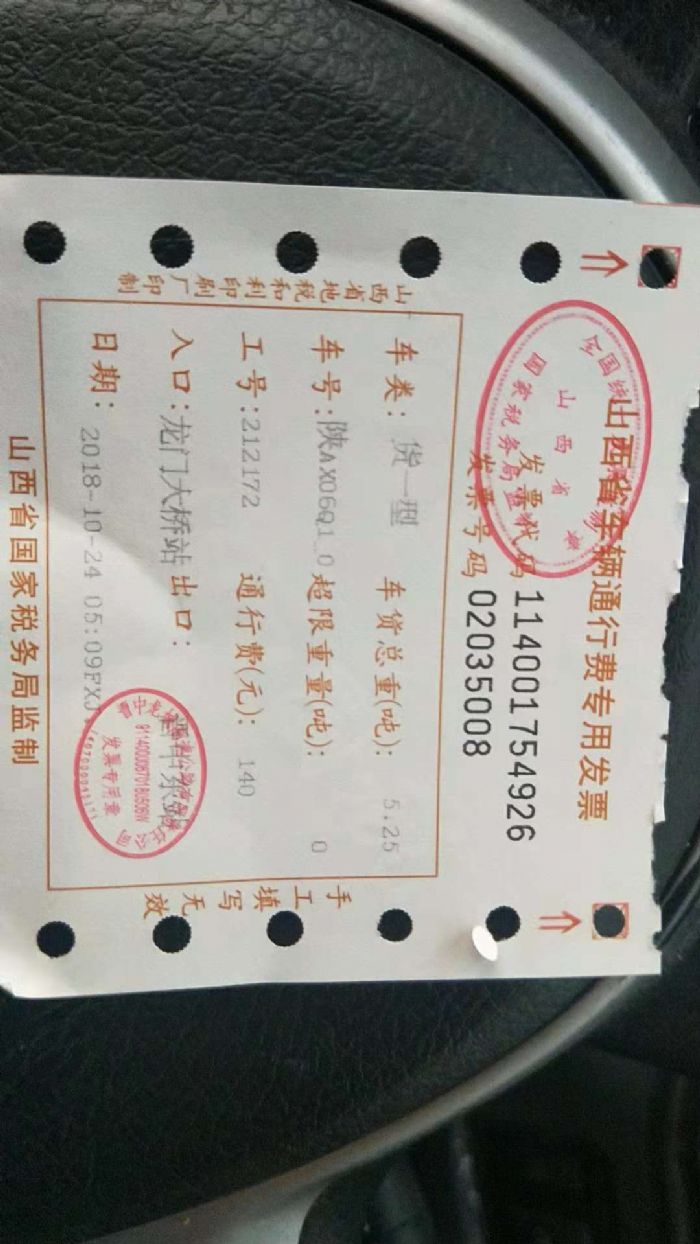 山西省车辆通行费专用发票
发票代码 114001754926
发票号码 02035008
山西省
国家税务局
车类：货一型 车货总重(吨)： 5.25
车号：陕AX06Q1_0 超限重量(吨)： 0
工号：212172 通行费(元)： 140
入口：龙门大桥站 出口：
日期：2018-10-24 05:09FXJ
发票专用章
山西省国家税务局监制
山西省地税和利印刷厂印制
手工填写无效